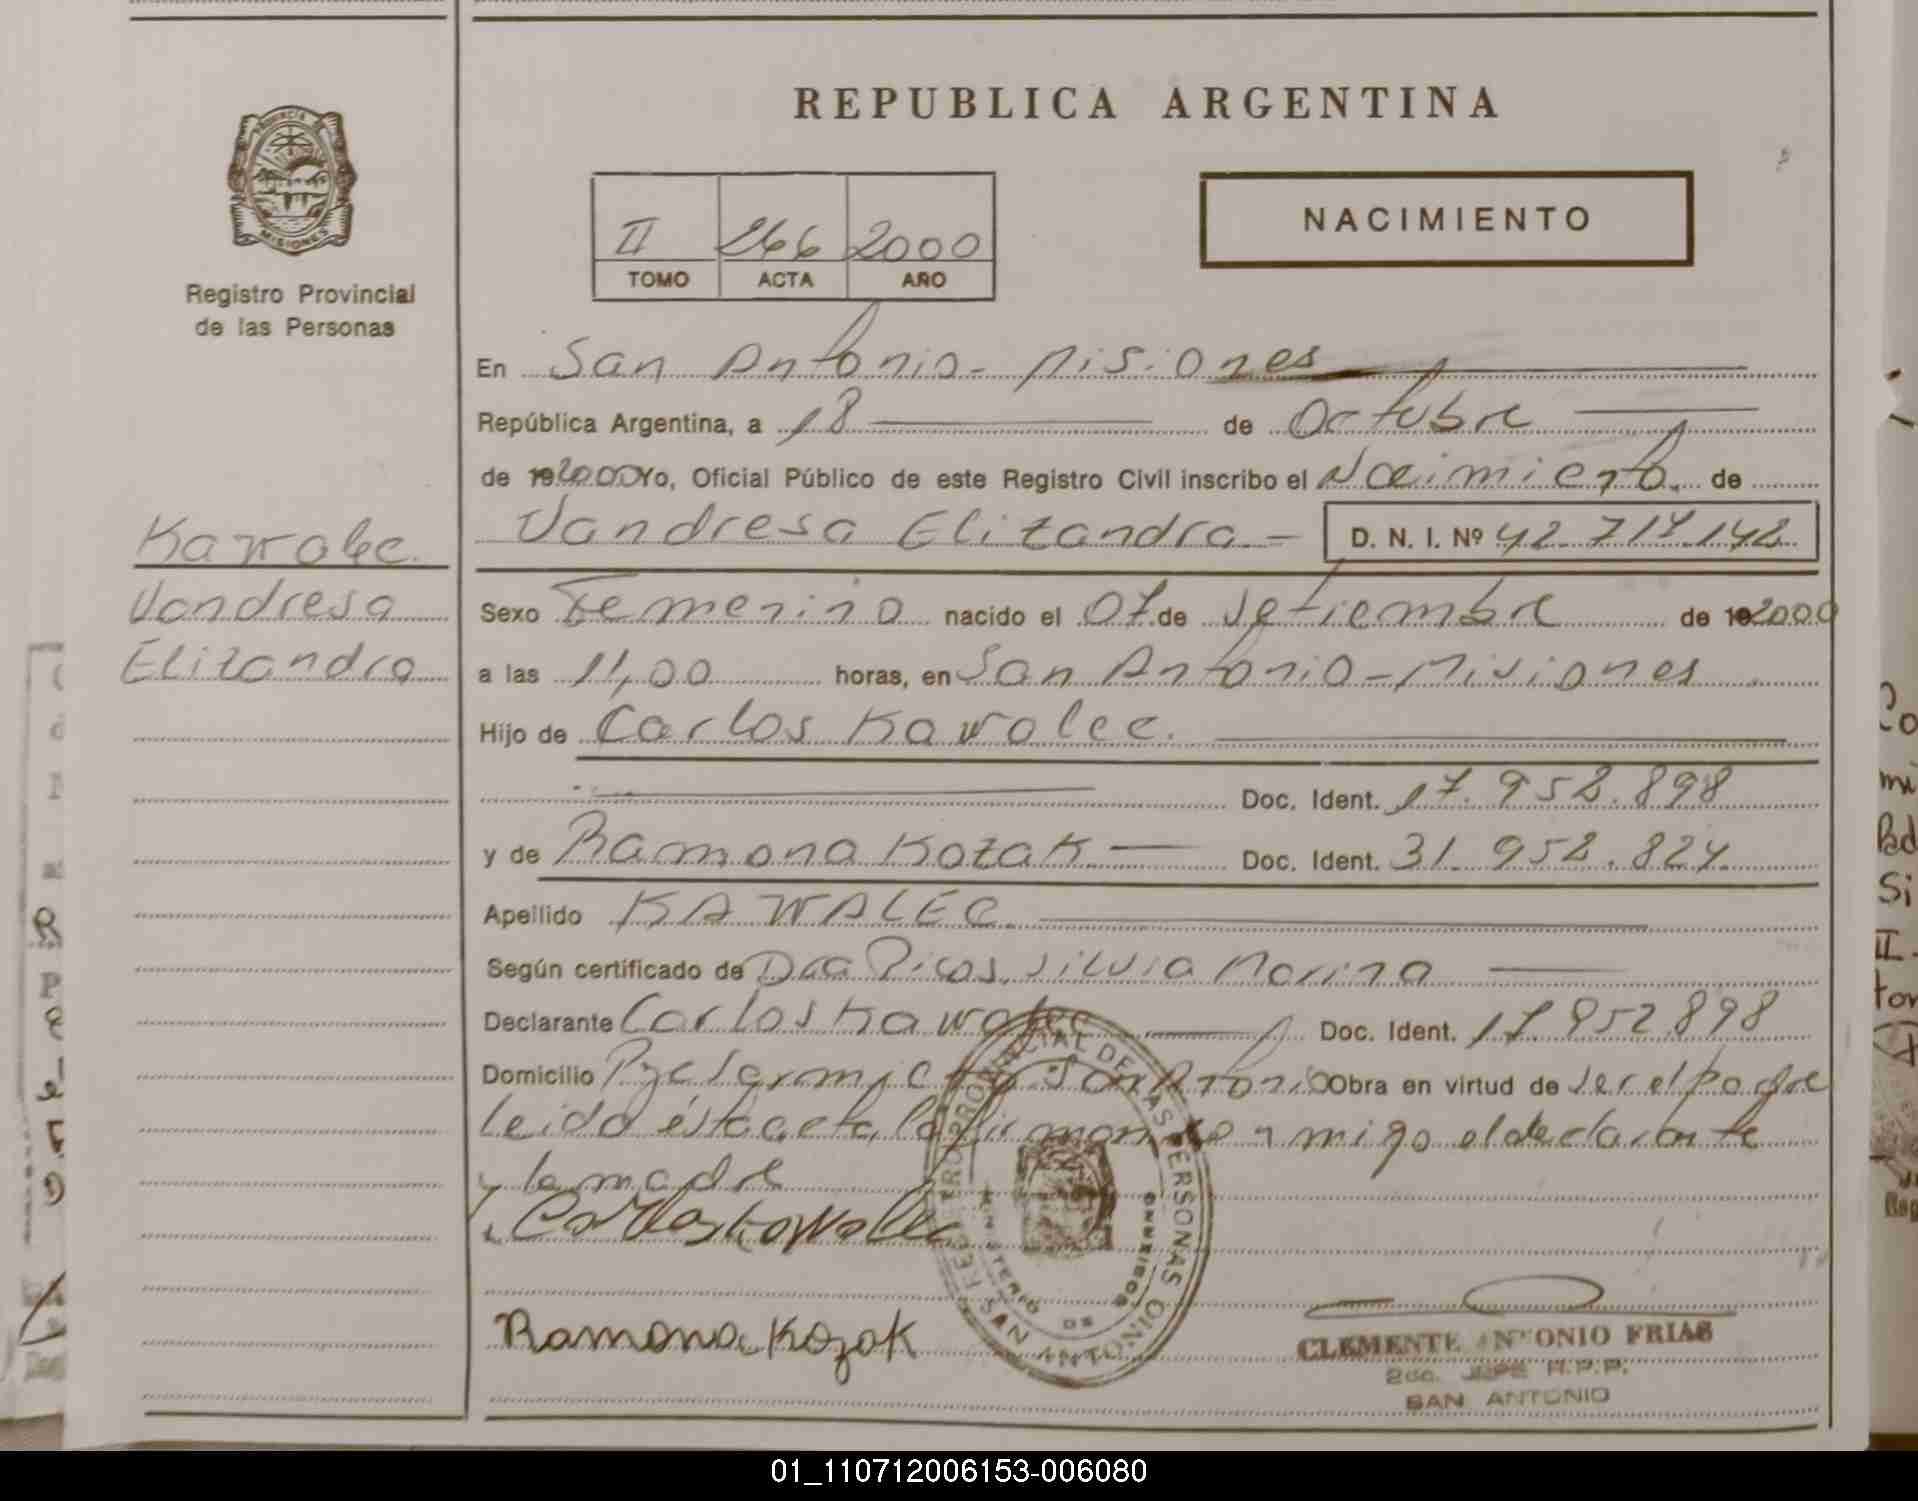 REPUBLICA ARGENTINA
PROVINCIA DE MISIONES
Registro Provincial
de las Personas
II 266 2000
TOMO ACTA AÑO
NACIMIENTO
En San Antonio - Misiones
República Argentina, a 18 de Octubre
de 192000 Yo, Oficial Público de este Registro Civil inscribo el Nacimiento de
Vandresa Elizandra - D. N. I. Nº 42.717.142
Kawalec
Vandresa
Elizandra
Sexo Femenino nacido el 07 de Setiembre de 192000
a las 11,00 horas, en San Antonio - Misiones
Hijo de Carlos Kawalec.
Doc. Ident. 17.952.898
y de Ramona Kozak Doc. Ident. 31.952.824
Apellido KAWALEC
Según certificado de Dra Picos, Silvia Marina
Declarante Carlos Kawalec Doc. Ident. 17.952.898
Domicilio San Antonio Obra en virtud de ser el padre
leida ésta acta, la firman conmigo el declarante
y la madre
Carlos Kawalec
Ramona Kozak
REGISTRO PROVINCIAL DE LAS PERSONAS
MINISTERIO DE GOBIERNO
SAN ANTONIO
CLEMENTE ANTONIO FRIAS
2do. JEFE R.P.P.
SAN ANTONIO
01_110712006153-006080